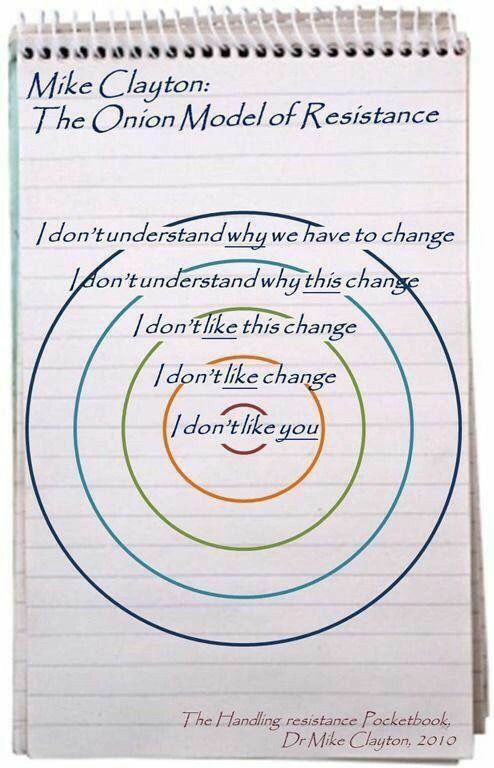 Mike Clayton:
The Onion Model of Resistance
I don't understand why we have to change
I don't understand why this change
I don't like this change
I don't like change
I don't like you
The Handling resistance Pocketbook,
Dr Mike Clayton, 2010